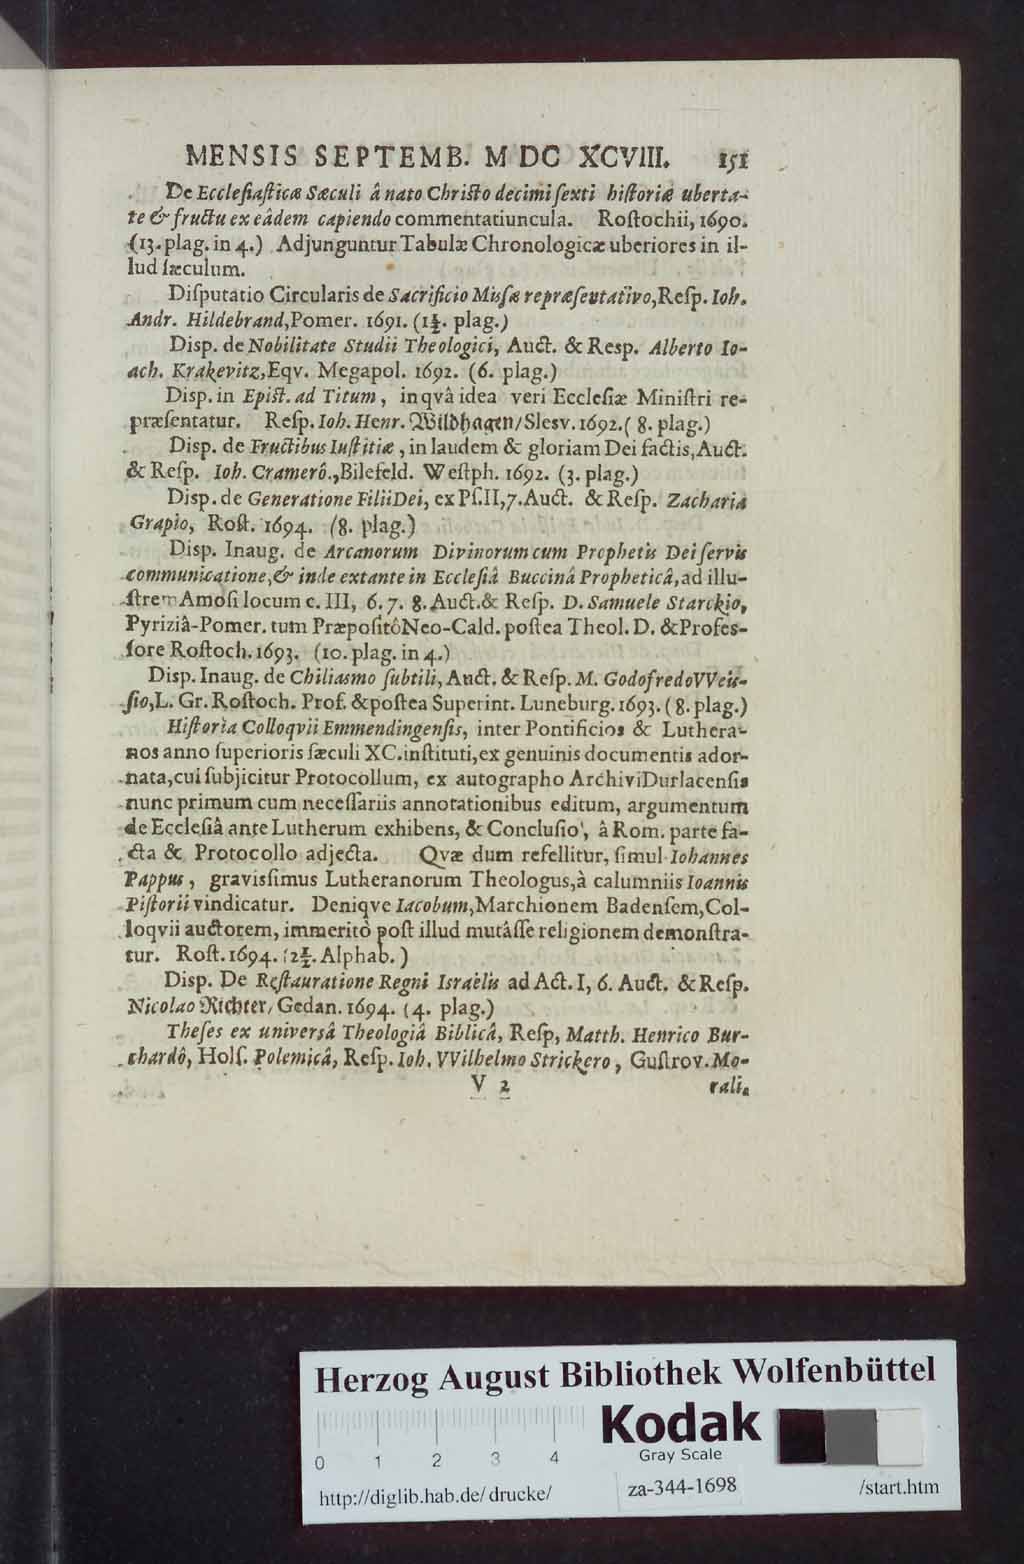 MENSIS SEPTEMB. M DC XCVIII. 151
De Ecclesiasticæ Sæculi â nato Christo decimi sexti historiæ uberta-
te & fructu ex eâdem capiendo commentatiuncula. Rostochii, 1690.
(13. plag. in 4.) Adjunguntur Tabulæ Chronologicæ uberiores in il-
lud sæculum.
Disputatio Circularis de Sacrificio Missæ repræsentativo, Resp. Ioh.
Andr. Hildebrand, Pomer. 1691. (1½. plag.)
Disp. de Nobilitate Studii Theologici, Auct. & Resp. Alberto Io-
ach. Krakevitz, Eqv. Megapol. 1692. (6. plag.)
Disp. in Epist. ad Titum, in qvâ idea veri Ecclesiæ Ministri re-
præsentatur. Resp. Ioh. Henr. Wildhagen/ Slesv. 1692. (8. plag.)
Disp. de Fructibus Iustitiæ, in laudem & gloriam Dei factis, Auct.
& Resp. Ioh. Cramerô., Bilefeld. Westph. 1692. (3. plag.)
Disp. de Generatione Filii Dei, ex Ps. II, 7. Auct. & Resp. Zacharia
Grapio, Rost. 1694. (8. plag.)
Disp. Inaug. de Arcanorum Divinorum cum Prophetis Dei servis
communicatione, & inde extante in Ecclesiâ Buccinâ Propheticâ, ad illu-
strem Amosi locum c. III, 6. 7. 8. Auct. & Resp. D. Samuele Starckio,
Pyriziâ-Pomer. tum Præpositô Neo-Cald. postea Theol. D. & Profes-
sore Rostoch. 1693. (10. plag. in 4.)
Disp. Inaug. de Chiliasmo subtili, Auct. & Resp. M. Godofredo VVeis-
sio, L. Gr. Rostoch. Prof. & postea Superint. Luneburg. 1693. (8. plag.)
Historia Colloqvii Emmendingensis, inter Pontificios & Luthera-
nos anno superioris sæculi XC. instituti, ex genuinis documentis ador-
nata, cui subjicitur Protocollum, ex autographo Archivi Durlacensis
nunc primum cum necessariis annotationibus editum, argumentum
de Ecclesiâ ante Lutherum exhibens, & Conclusio, â Rom. parte fa-
cta & Protocollo adjecta. Qvæ dum refellitur, simul Iohannes
Pappus, gravissimus Lutheranorum Theologus, à calumniis Ioannis
Pistorii vindicatur. Deniqve Iacobum, Marchionem Badensem, Col-
loqvii auctorem, immeritò post illud mutâsse religionem demonstra-
tur. Rost. 1694. (2½. Alphab.)
Disp. De Restauratione Regni Israëlis ad Act. I, 6. Auct. & Resp.
Nicolao Richter/ Gedan. 1694. (4. plag.)
Theses ex universâ Theologiâ Biblicâ, Resp, Matth. Henrico Bur-
chardô, Hols. Polemicâ, Resp. Ioh. VVilhelmo Strickero, Gustrov. Mo-
V 2 rali,
Herzog August Bibliothek Wolfenbüttel
Kodak
Gray Scale
0 1 2 3 4
http://diglib.hab.de/drucke/ za-344-1698 /start.htm